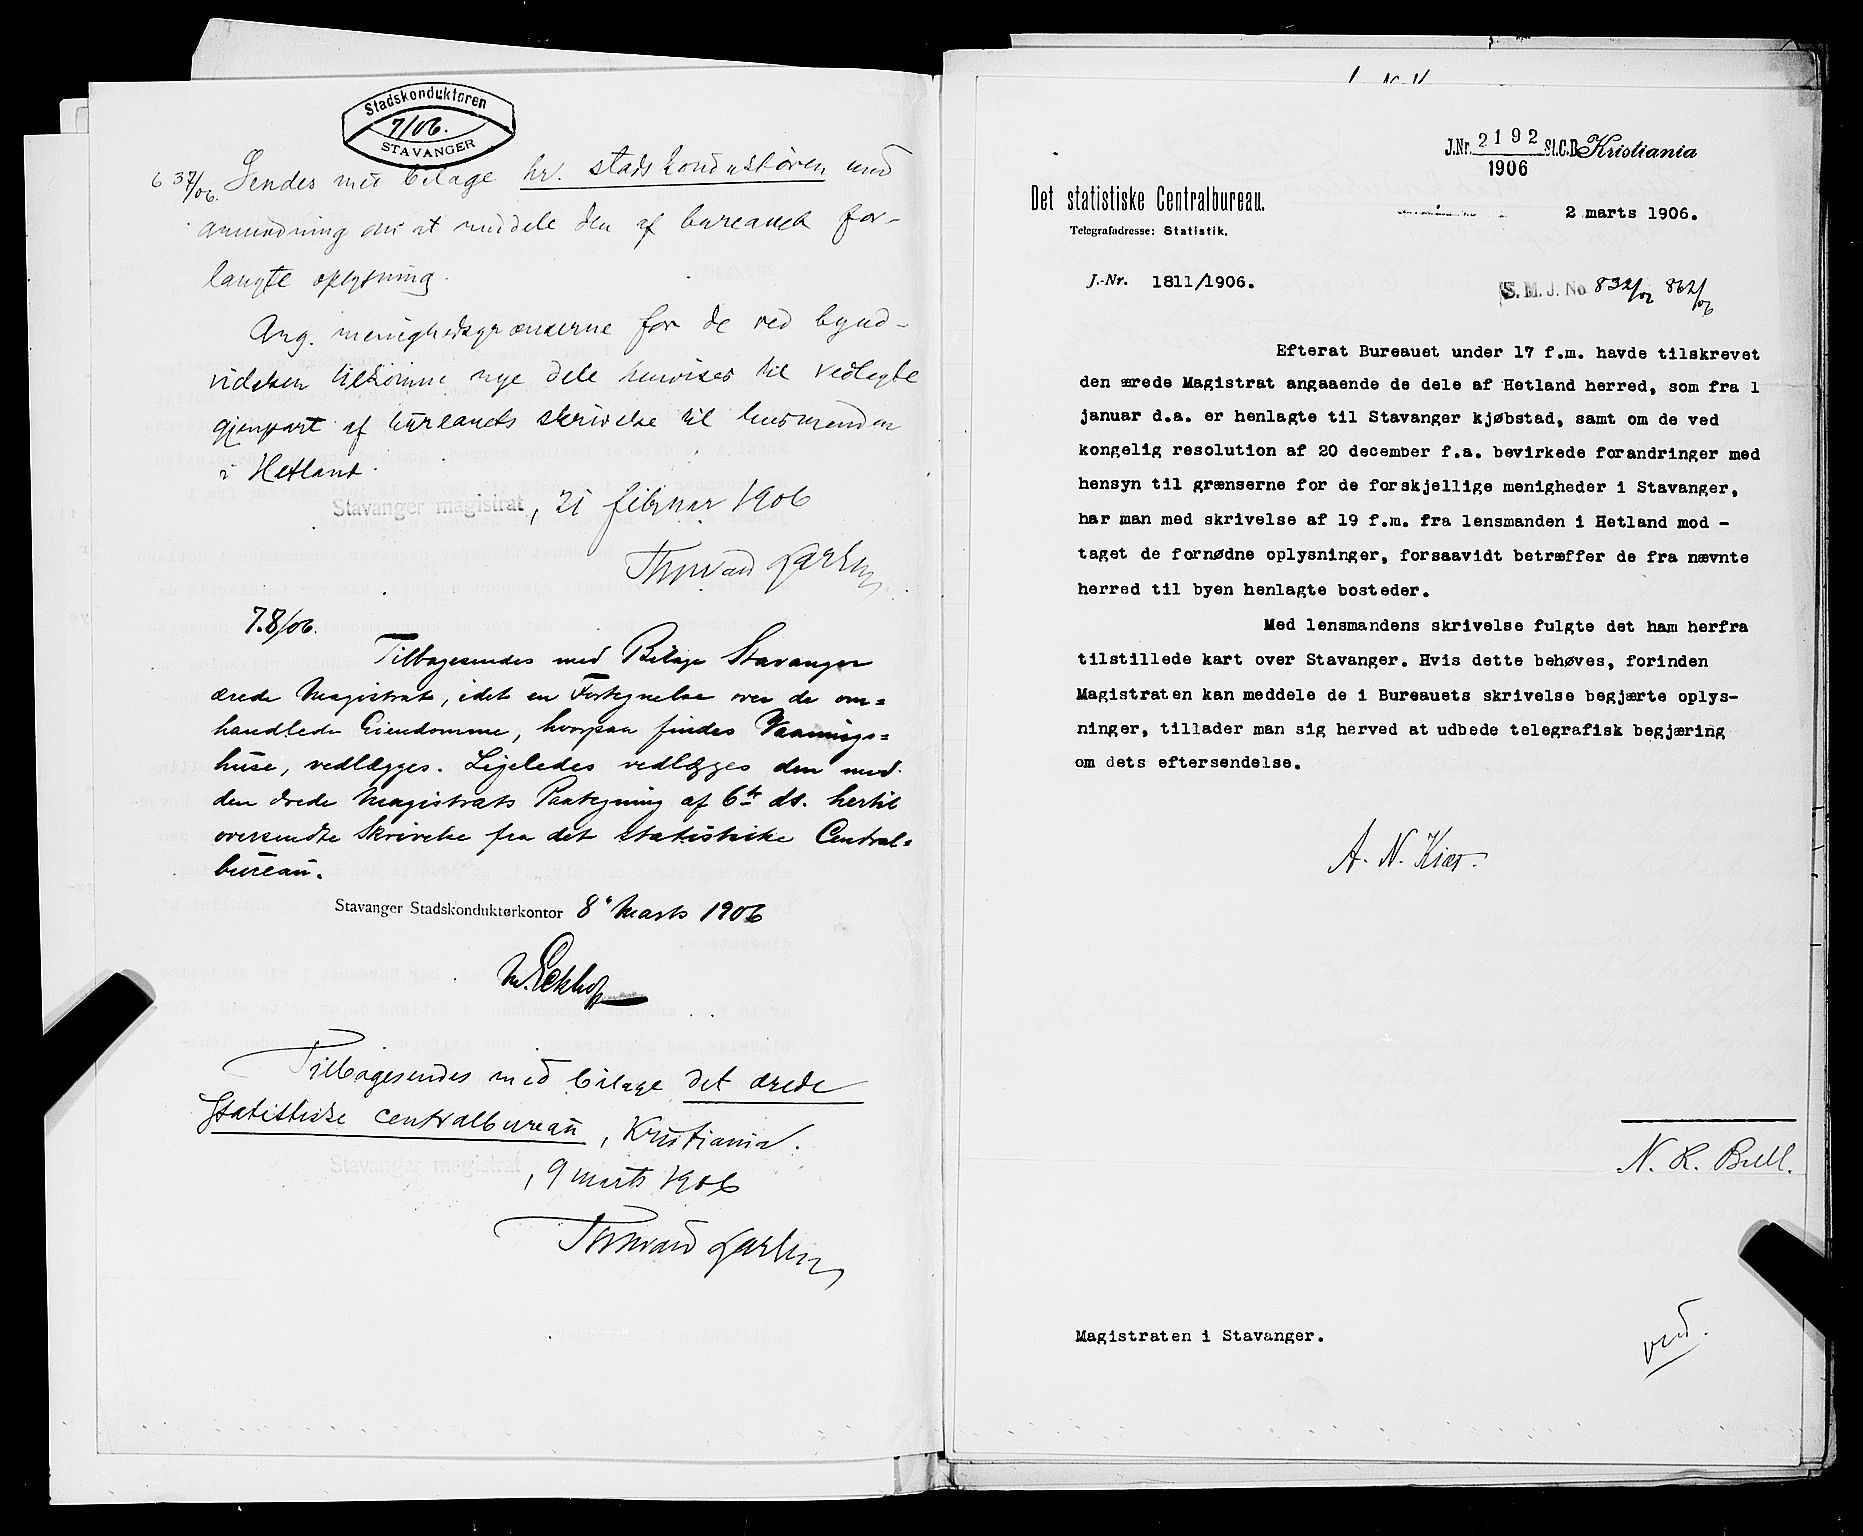 Stadskonduktøren
7/06.
STAVANGER
637/06. Sendes med bilage hr. stadskonduktøren med
anmodning om at meddele den af bureauet for-
langte oplysning.
Ang. menighedsgrænserne for de ved byud-
videlsen tilkomne nye dele henvises til vedlagte
gjenpart af bureauets skrivelse til lensmanden
i Hetland.
Stavanger magistrat, 21 februar 1906
Thorvald Larsen
7.8/06.
Tilbagesendes med Bilage Stavanger
ærede Magistrat, idet en Fortegnelse over de om=
handlede Eiendomme, hvorpaa findes Vaanings=
huse, vedlægges. Ligeledes vedlægges den med
den ærede Magistrats Paategning af 6te ds. hertil
oversendte Skrivelse fra det statistiske Central=
bureau.
Stavanger Stadskonduktørkontor 8' Marts 1906
M. Eckhoff
Tilbagesendes med bilage det ærede
statistiske centralbureau, Kristiania.
Stavanger magistrat, 9 marts 1906
Thorvald Larsen
J.Nr. 2192 St.C.B. Kristiania
1906
Det statistiske Centralbureau.
2 marts 1906.
Telegrafadresse: Statistik.
J.-Nr. 1811/1906.
S. M. J. No 832/06 862/06
Efterat Bureauet under 17 f.m. havde tilskrevet
den ærede Magistrat angaaende de dele af Hetland herred, som fra 1
januar d.a. er henlagte til Stavanger kjøbstad, samt om de ved
kongelig resolution af 20 december f.a. bevirkede forandringer med
hensyn til grænserne for de forskjellige menigheder i Stavanger,
har man med skrivelse af 19 f.m. fra lensmanden i Hetland mod -
taget de fornødne oplysninger, forsaavidt betræffer de fra nævnte
herred til byen henlagte bosteder.
Med lensmandens skrivelse fulgte det ham herfra
tilstillede kart over Stavanger. Hvis dette behøves, forinden
Magistraten kan meddele de i Bureauets skrivelse begjærte oplys-
ninger, tillader man sig herved at udbede telegrafisk begjæring
om dets eftersendelse.
A. N. Kiær.
N. R. Bull.
Magistraten i Stavanger.